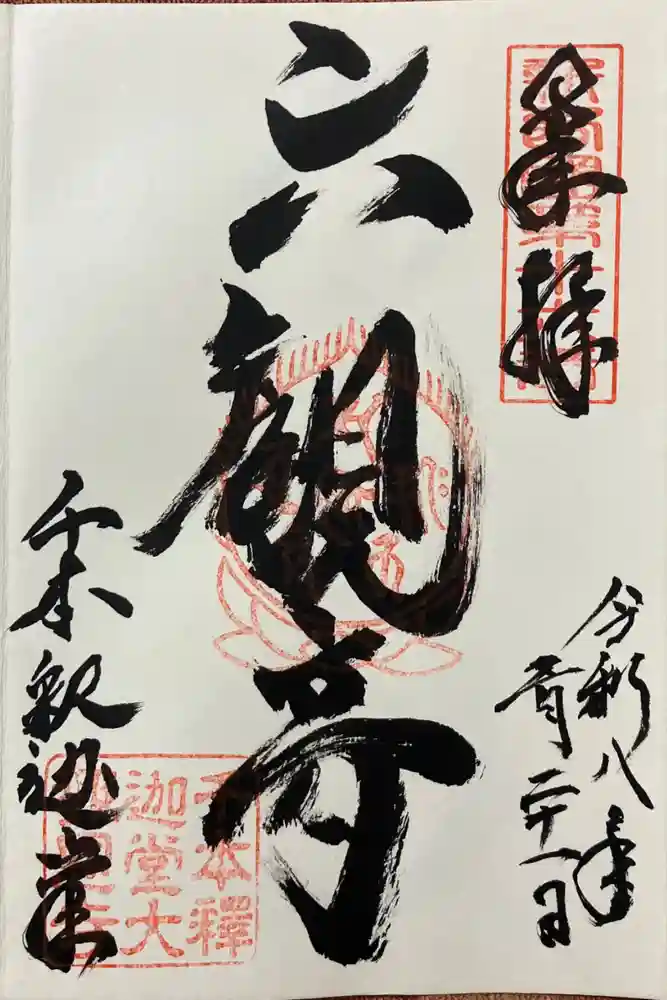 奉拝
令和八年
月二十一日
六観音
千本釈迦堂
千本釋
迦堂大
報恩寺